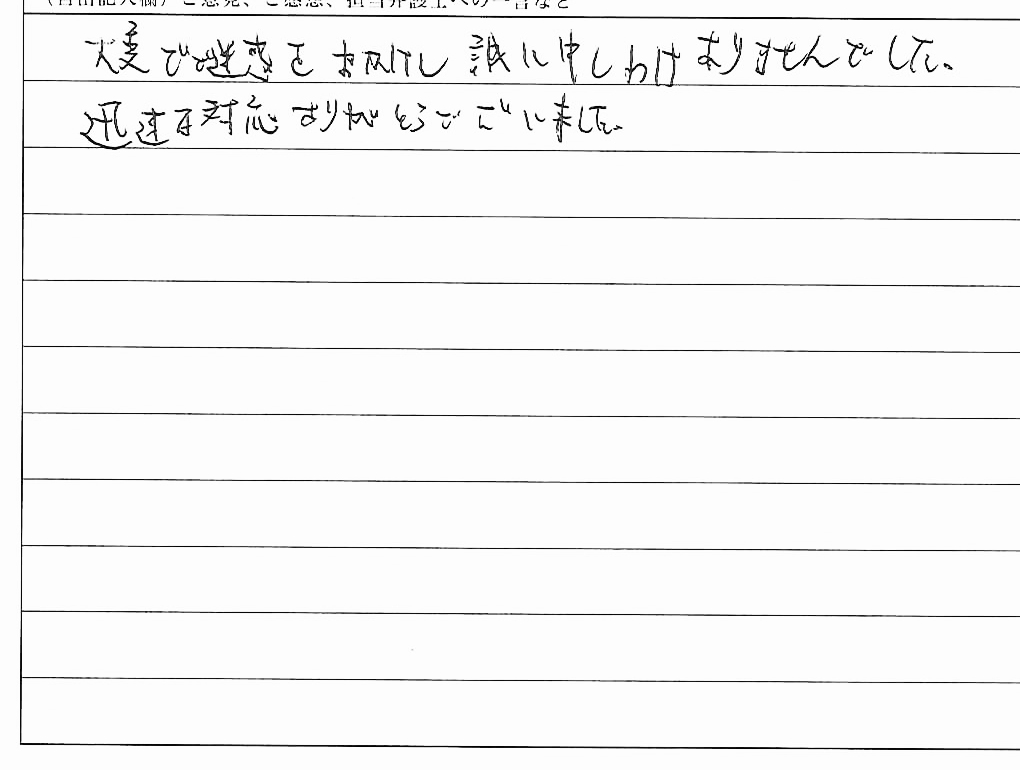 (自由記入欄) ご感想、ご意見、担当弁護士への一言など
大変ご迷惑をお掛けし誠に申しわけありませんでした。
迅速な対応ありがとうございました。